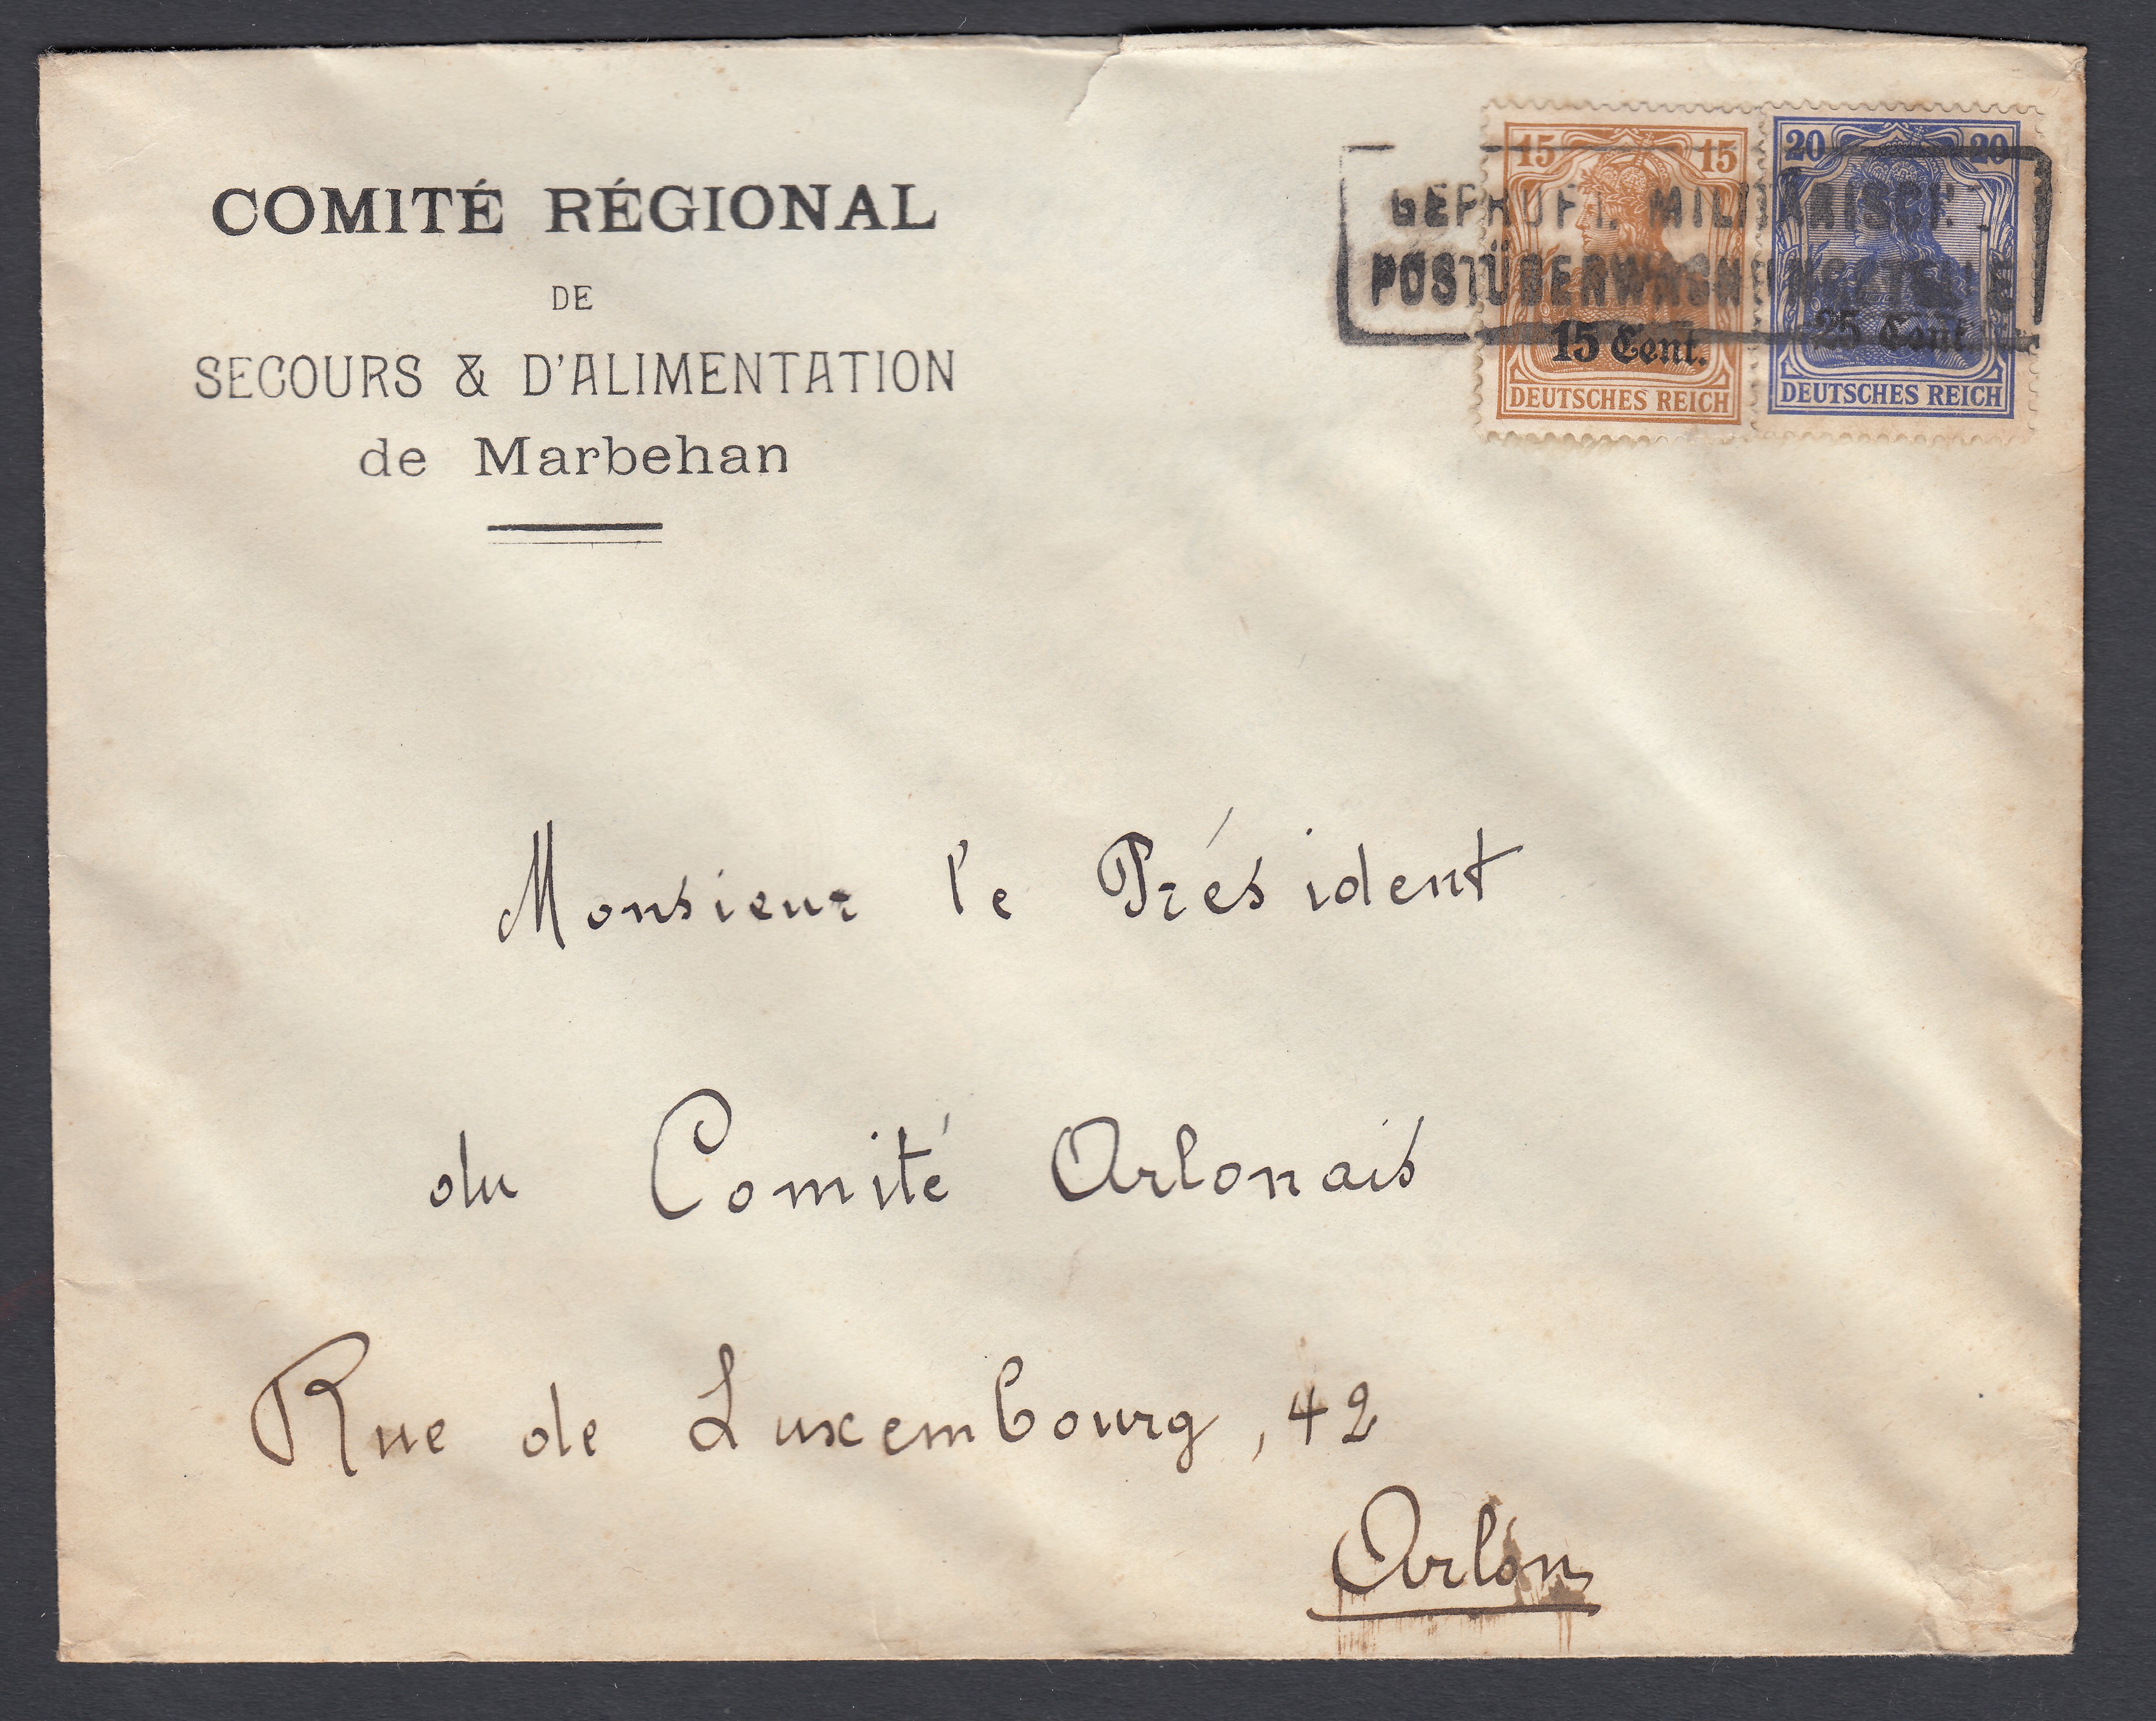 COMITÉ RÉGIONAL
DE
SECOURS & D'ALIMENTATION
de Marbehan
15 15
15 Cent.
DEUTSCHES REICH
20 20
25 Cent.
DEUTSCHES REICH
GEPRÜFT. MILITÄRISCHE
POSTÜBERWACHUNGSSTELLE
Monsieur le Président
du Comité Arlonais
Rue de Luxembourg, 42
Arlon